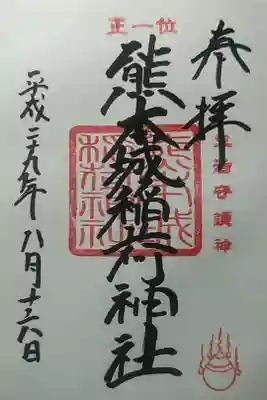 奉拝
正一位
守護神
熊本城稲荷神社
平成二十九年八月十六日